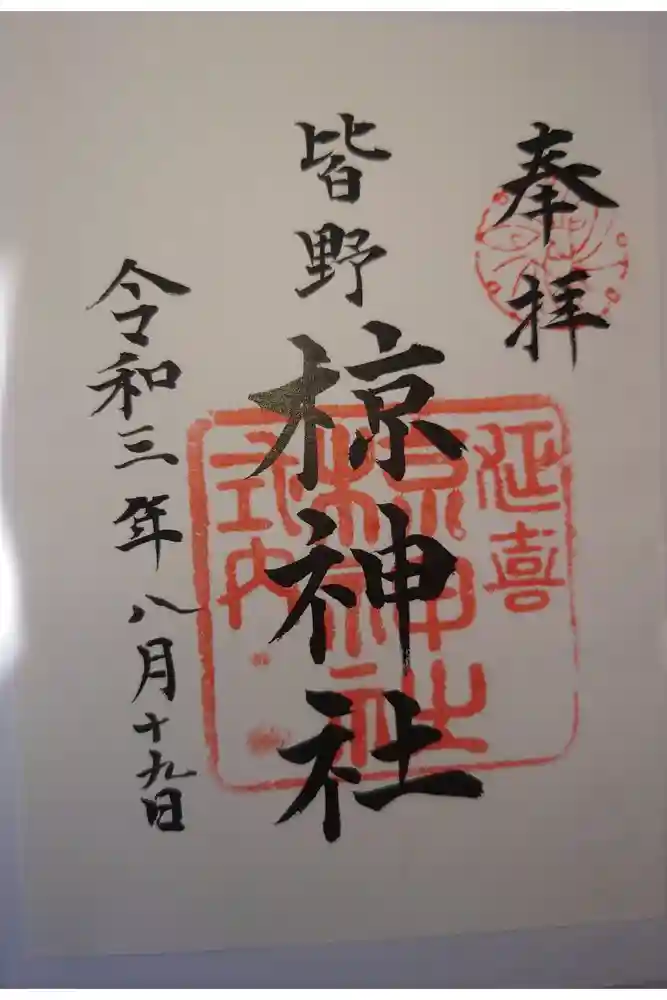 奉拝
延喜
皆野
椋神社
椋神社
式内
令和三年八月十九日